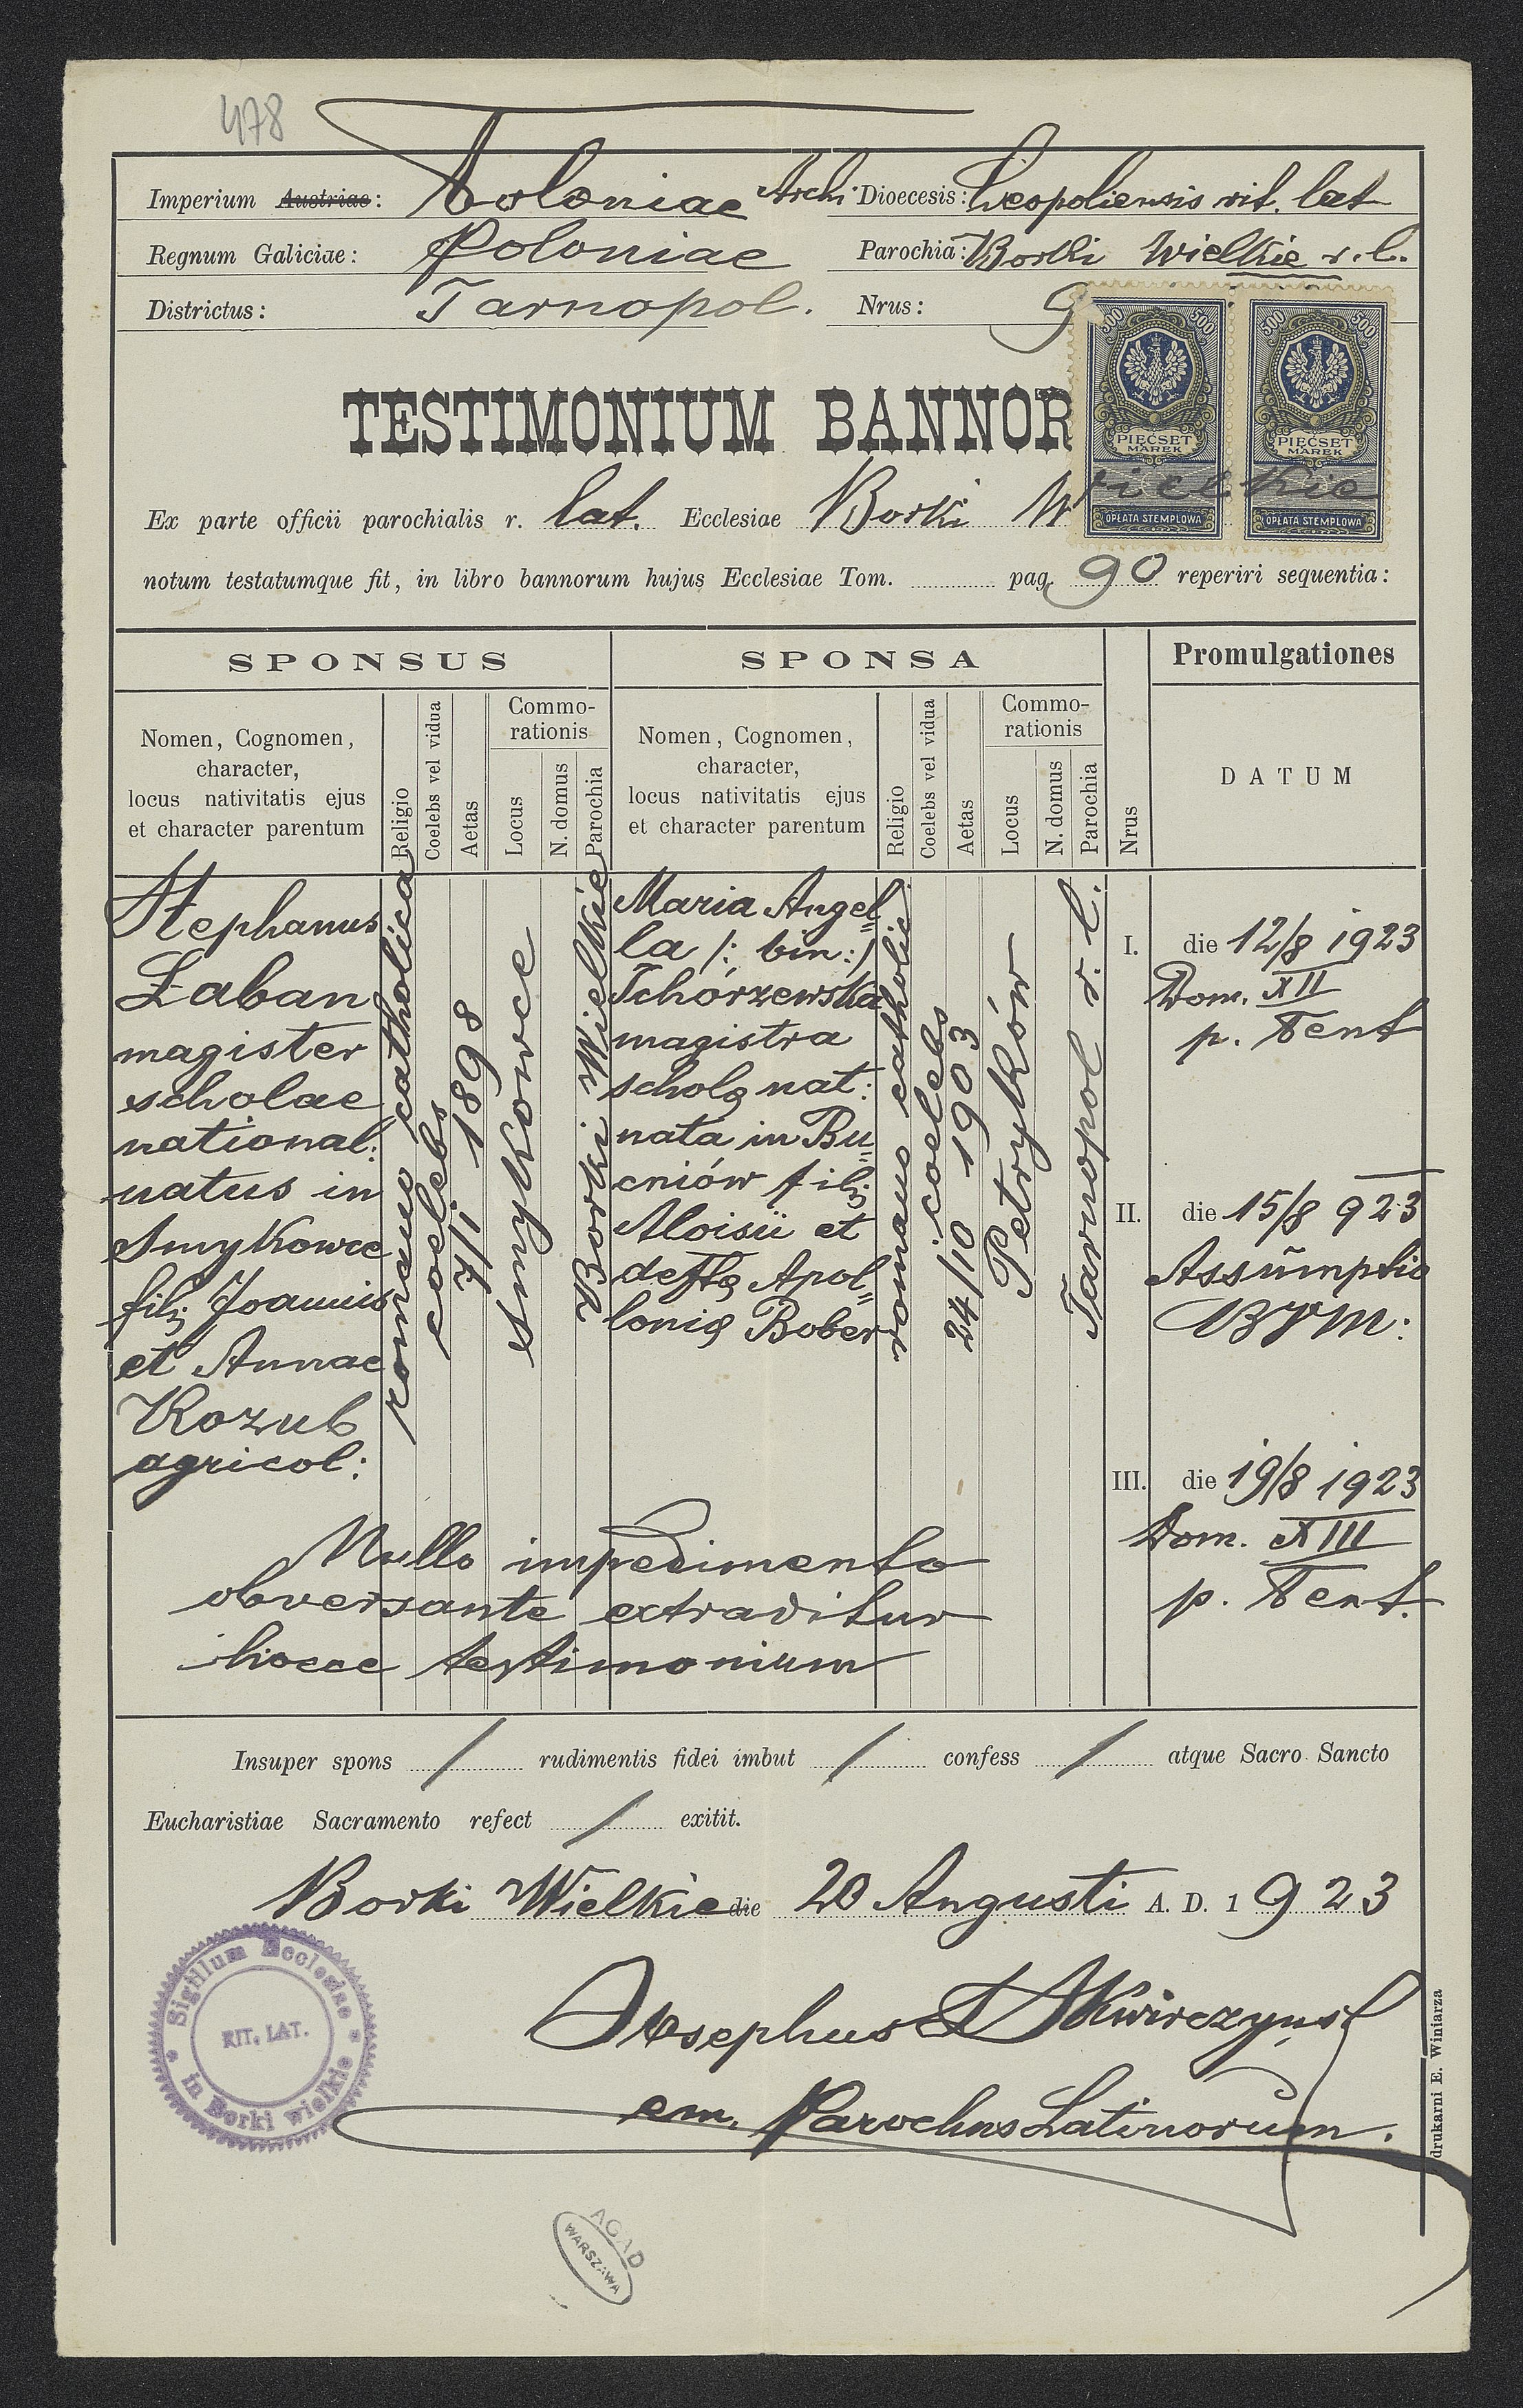 478
Imperium Austriae: Poloniae Archi Dioecesis: Leopoliensis rit. lat
Regnum Galiciae: Poloniae Parochia: Borki Wielkie r. l.
Districtus: Tarnopol. Nrus: 9
500 500 500 500
PIĘĆSET MAREK PIĘĆSET MAREK
OPŁATA STEMPLOWA OPŁATA STEMPLOWA
TESTIMONIUM BANNOR
Ex parte officii parochialis r. lat. Ecclesiae Borki Wielkie
notum testatumque fit, in libro bannorum hujus Ecclesiae Tom. pag. 90 reperiri sequentia:
SPONSUS
Nomen, Cognomen,
character,
locus nativitatis ejus
et character parentum
Religio
Coelebs vel vidua
Aetas
Commo-
rationis
Locus
N. domus
Parochia
SPONSA
Nomen, Cognomen,
character,
locus nativitatis ejus
et character parentum
Religio
Coelebs vel vidua
Aetas
Commo-
rationis
Locus
N. domus
Parochia
Nrus
Promulgationes
DATUM
Stephanus
Łaban
magister
scholae
national:
natus in
Smykowce
filj Joannis
et Annae
Kozub
agricol:
romano catholica
coelebs
7/1 1898
Smykowce
Borki Wielkie
Maria Angel
la /: bin:/
Tchórzewska
magistra
scholę nat:
nata in Bu
cniów filj
Aloisii et
defftę Apol
lonię Bober
romano catholic
coelebs
24/10 1903
Petryków
Tarnopol r. l.
I. die 12/8 1923
Dom. XII
p. Pent
II. die 15/8 923
Assumptio
BVM:
III. die 19/8 1923
Dom. XIII
p. Pent.
Nullo impedimento
obversante extraditur
hocce testimonium
Insuper spons / rudimentis fidei imbut / confess / atque Sacro Sancto
Eucharistiae Sacramento refect / exitit.
Borki Wielkie die 20 Augusti A. D. 1923
Sigillum Ecclesiae
RIT. LAT.
in Borki wielkie
Josephus Kwirczyńsk
em. Parochus Latinorum.
drukarni E. Winiarza
AGAD
WARSZAWA